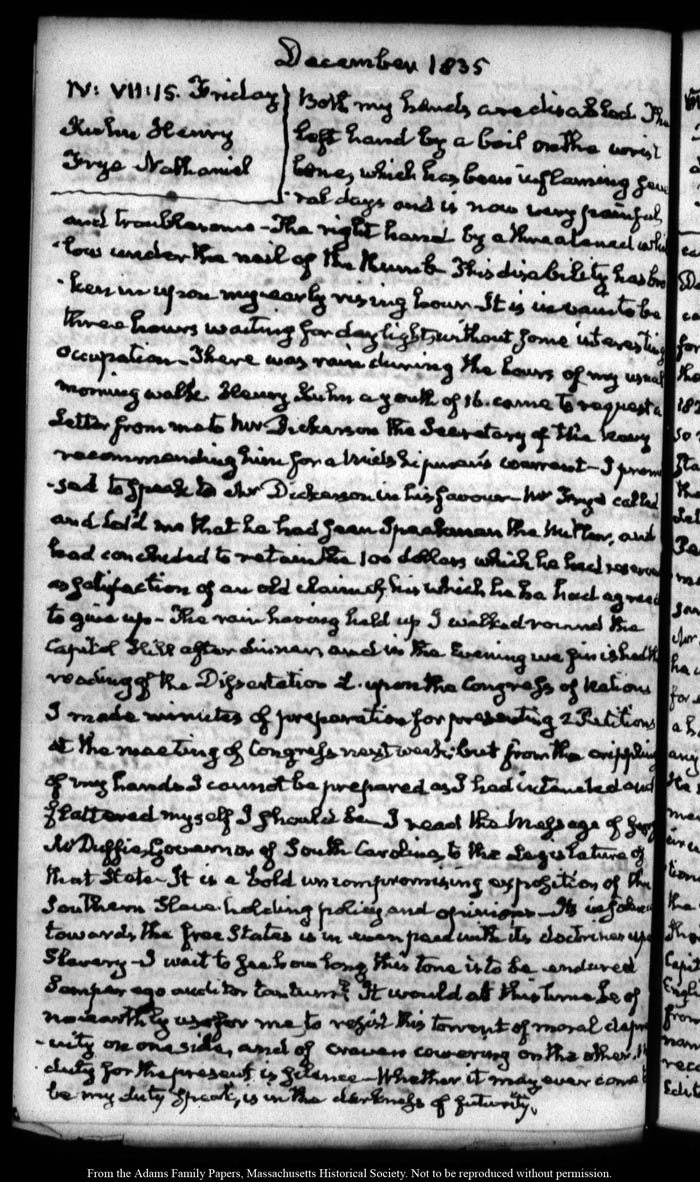 December 1835
IV: VII:15. Friday
Kuhn Henry
Frye Nathaniel
Both my hands are disabled. The
left hand by a boil on the wrist
bone, which has been inflaming seve
ral days and is now very painful,
and troublesome — The right hand by a threatened whit
low under the nail of the thumb. This disability has bro
ken in upon my early rising hour. It is in vain to be
three hours waiting for day light, without some interesting
occupation — There was rain during the hours of my usual
morning walk. Henry Kuhn a youth of 16. came to request a
Letter from me to Mr Dickerson the Secretary of the Navy
recommending him for a Midshipman's warrant — I promi
sed to speak to Mr Dickerson in his favour — Mr Frye called
and told me that he had seen Speakman the Miller, and
had concluded to retain the 100 dollars which he had reserved
as satisfaction of an old claim of his which he had agreed
to give up — The rain having held up I walked round the
Capitol Hill after dinner, and in the Evening we finished the
reading of the Dissertation 2. upon the Congress of Nations
I made minutes of preparation for presenting 2 Petitions
at the meeting of Congress next week; but from the crippling
of my hands I cannot be prepared as I had intended and
flattered myself I should be — I read the Message of
McDuffie, Governor of South Carolina, to the Legislature of
that State — It is a bold uncompromising exposition of the
Southern Slave-holding policy and opinions — Its insolence
towards the free States is in even pace with its doctrines upon
Slavery — I wait to see how long this tone is to be endured
Semper ego auditor tantum? It would at this time be of
no earthly use for me to resist this torrent of moral depra
vity on one side, and of craven cowering on the other.
duty for the present is silence — Whether it may ever come
be my duty to speak, is in the darkness of futurity.
From the Adams Family Papers, Massachusetts Historical Society. Not to be reproduced without permission.